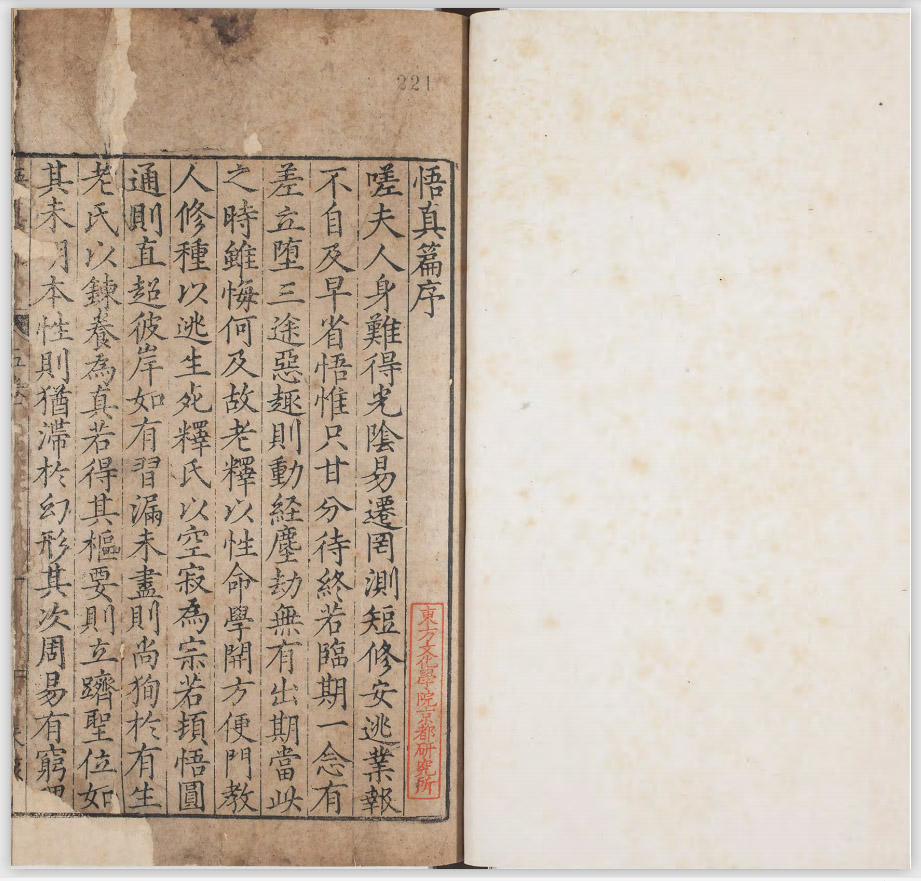 221
悟真篇序
嗟夫人身難得光陰易遷罔測短修安逃業報
不自及早省悟惟只甘分待終若臨期一念有
差立堕三途惡趣則動経塵劫無有出期當此
之時雖悔何及故老釋以性命學開方便門教
人修種以逃生死釋氏以空寂為宗若頓悟圓
通則直超彼岸如有習漏未盡則尚狥於有生
老氏以鍊養為真若得其樞要則立躋聖位如
其未明本性則猶滯於幻形其次周易有窮理
東方文化學院京都研究所